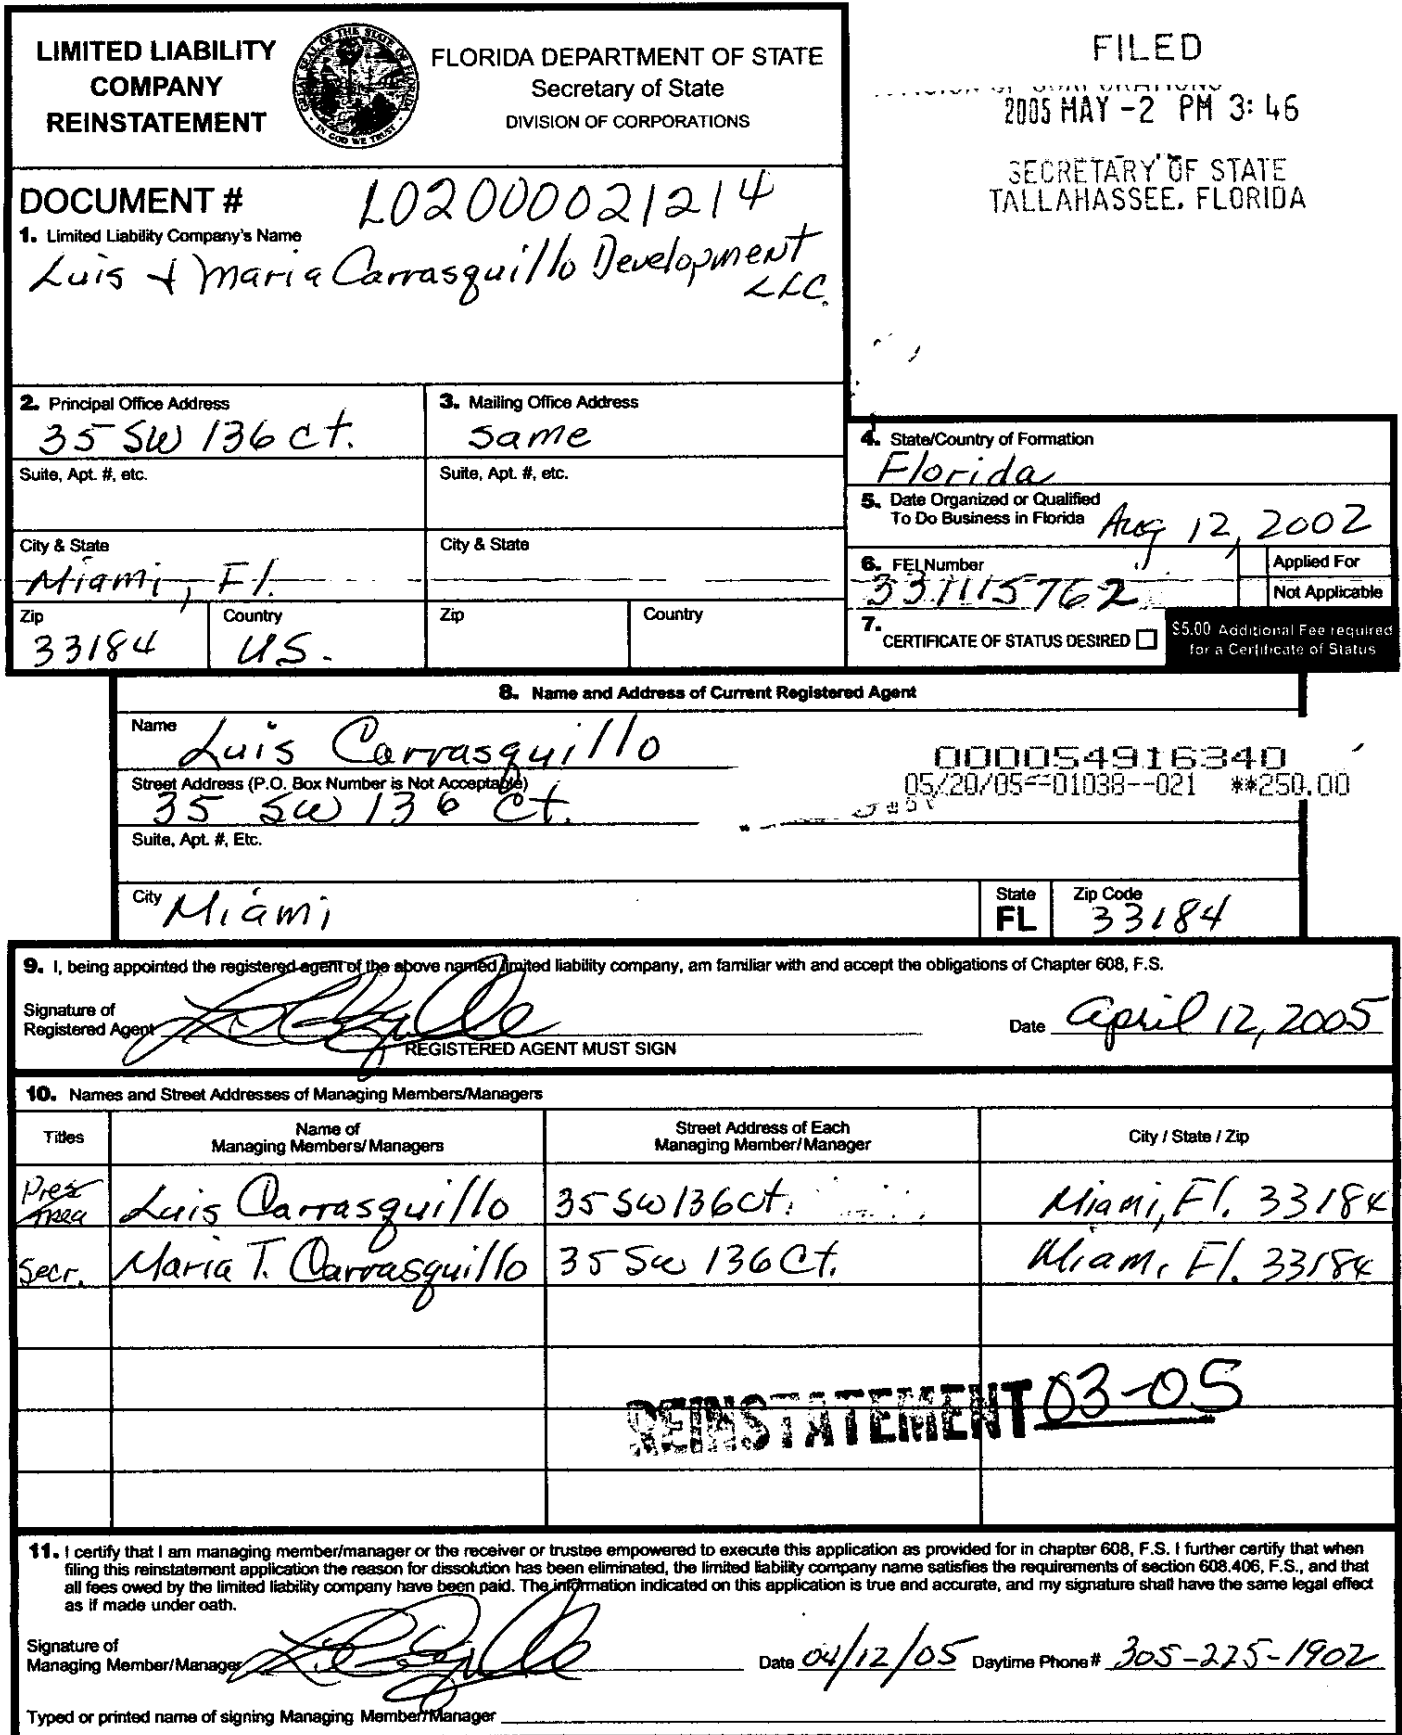 LIMITED LIABILITY
COMPANY
REINSTATEMENT
GREAT SEAL OF THE STATE OF FLORIDA
IN GOD WE TRUST
FLORIDA DEPARTMENT OF STATE
Secretary of State
DIVISION OF CORPORATIONS
FILED
2005 MAY -2 PM 3:46
SECRETARY OF STATE
TALLAHASSEE, FLORIDA
DOCUMENT # L02000021214
1. Limited Liability Company's Name
Luis & Maria Carrasquillo Development
LLC.
2. Principal Office Address
35 SW 136 Ct.
3. Mailing Office Address
same
Suite, Apt. #, etc.
Suite, Apt. #, etc.
City & State
Miami, Fl.
City & State
Zip
33184
Country
US.
Zip
Country
4. State/Country of Formation
Florida
5. Date Organized or Qualified
To Do Business in Florida Aug 12, 2002
6. FEI Number
331115762
Applied For
Not Applicable
7. CERTIFICATE OF STATUS DESIRED
$5.00 Additional Fee required
for a Certificate of Status
8. Name and Address of Current Registered Agent
Name
Luis Carrasquillo
000054916340
05/20/05--01038--021 **250.00
Street Address (P.O. Box Number is Not Acceptable)
35 SW 136 Ct.
Suite, Apt. #, Etc.
City Miami
State
FL
Zip Code
33184
9. I, being appointed the registered agent of the above named limited liability company, am familiar with and accept the obligations of Chapter 608, F.S.
Signature of
Registered Agent
REGISTERED AGENT MUST SIGN
Date April 12, 2005
10. Names and Street Addresses of Managing Members/Managers
Titles
Name of
Managing Members/Managers
Street Address of Each
Managing Member/Manager
City / State / Zip
Pres
Luis Carrasquillo 35 SW 136 Ct. Miami, Fl. 33184
Secr. Maria T. Carrasquillo 35 SW 136 Ct. Miami Fl. 33184
REINSTATEMENT 03-05
11. I certify that I am managing member/manager or the receiver or trustee empowered to execute this application as provided for in chapter 608, F.S. I further certify that when
filing this reinstatement application the reason for dissolution has been eliminated, the limited liability company name satisfies the requirements of section 608.406, F.S., and that
all fees owed by the limited liability company have been paid. The information indicated on this application is true and accurate, and my signature shall have the same legal effect
as if made under oath.
Signature of
Managing Member/Manager
Date 04/12/05 Daytime Phone # 305-225-1902
Typed or printed name of signing Managing Member/Manager